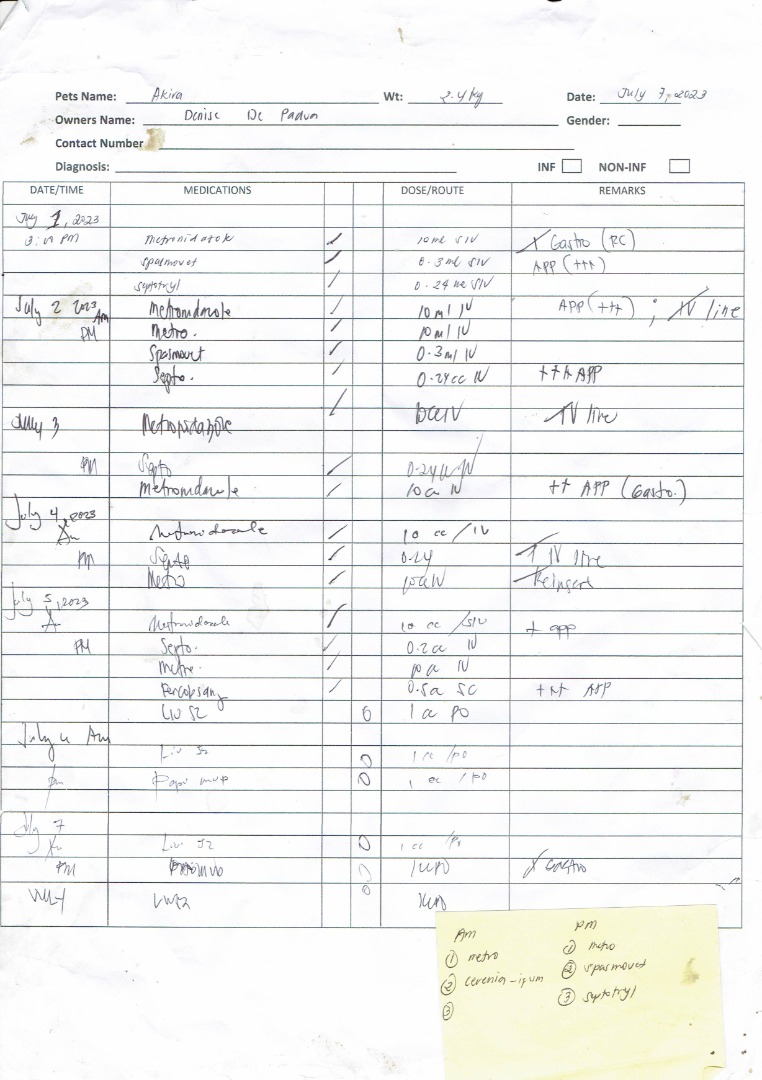 Pets Name: Akira Wt: 2.4kg Date: July 7, 2023
Owners Name: Denise De Padua Gender:
Contact Number
Diagnosis: INF NON-INF
DATE/TIME MEDICATIONS DOSE/ROUTE REMARKS
July 1, 2023
PM 10ml SIV Gastro (RC)
spasmovet 0.3ml SIV APP (+++)
septotryl 0.24 SIV
July 2 2023 Am Metronidazole 10ml IV APP (+++) ; IV line
PM Metro. 10ml IV
Spasmovet 0.3ml IV
Septo. 0.24cc IV +++ APP
July 3 Metronidazole 10cc IV IV line
PM Septo 0.24cc IV
Metronidazole 10cc IV ++ APP (Gastro.)
July 4, 2023
Am Metronidazole 10 cc / IV
PM Septo 0.24 IV line
Metro 10cc IV Reinsert
July 5, 2023
A Metronidazole 10 cc /SIV + app
PM Septo. 0.2cc IV
Metro. 10cc IV
0.5cc SC +++ APP
LIV 52 0 1 cc PO
July Am
Liv 52 0 1 cc /PO
pm 0 1 cc / PO
July 7
Am Liv 52 0 1 cc /PO
PM 0 1cc PO Gastro
0
Am
① metro
② cerenia
③
PM
① metro
② spasmovet
③ septotryl